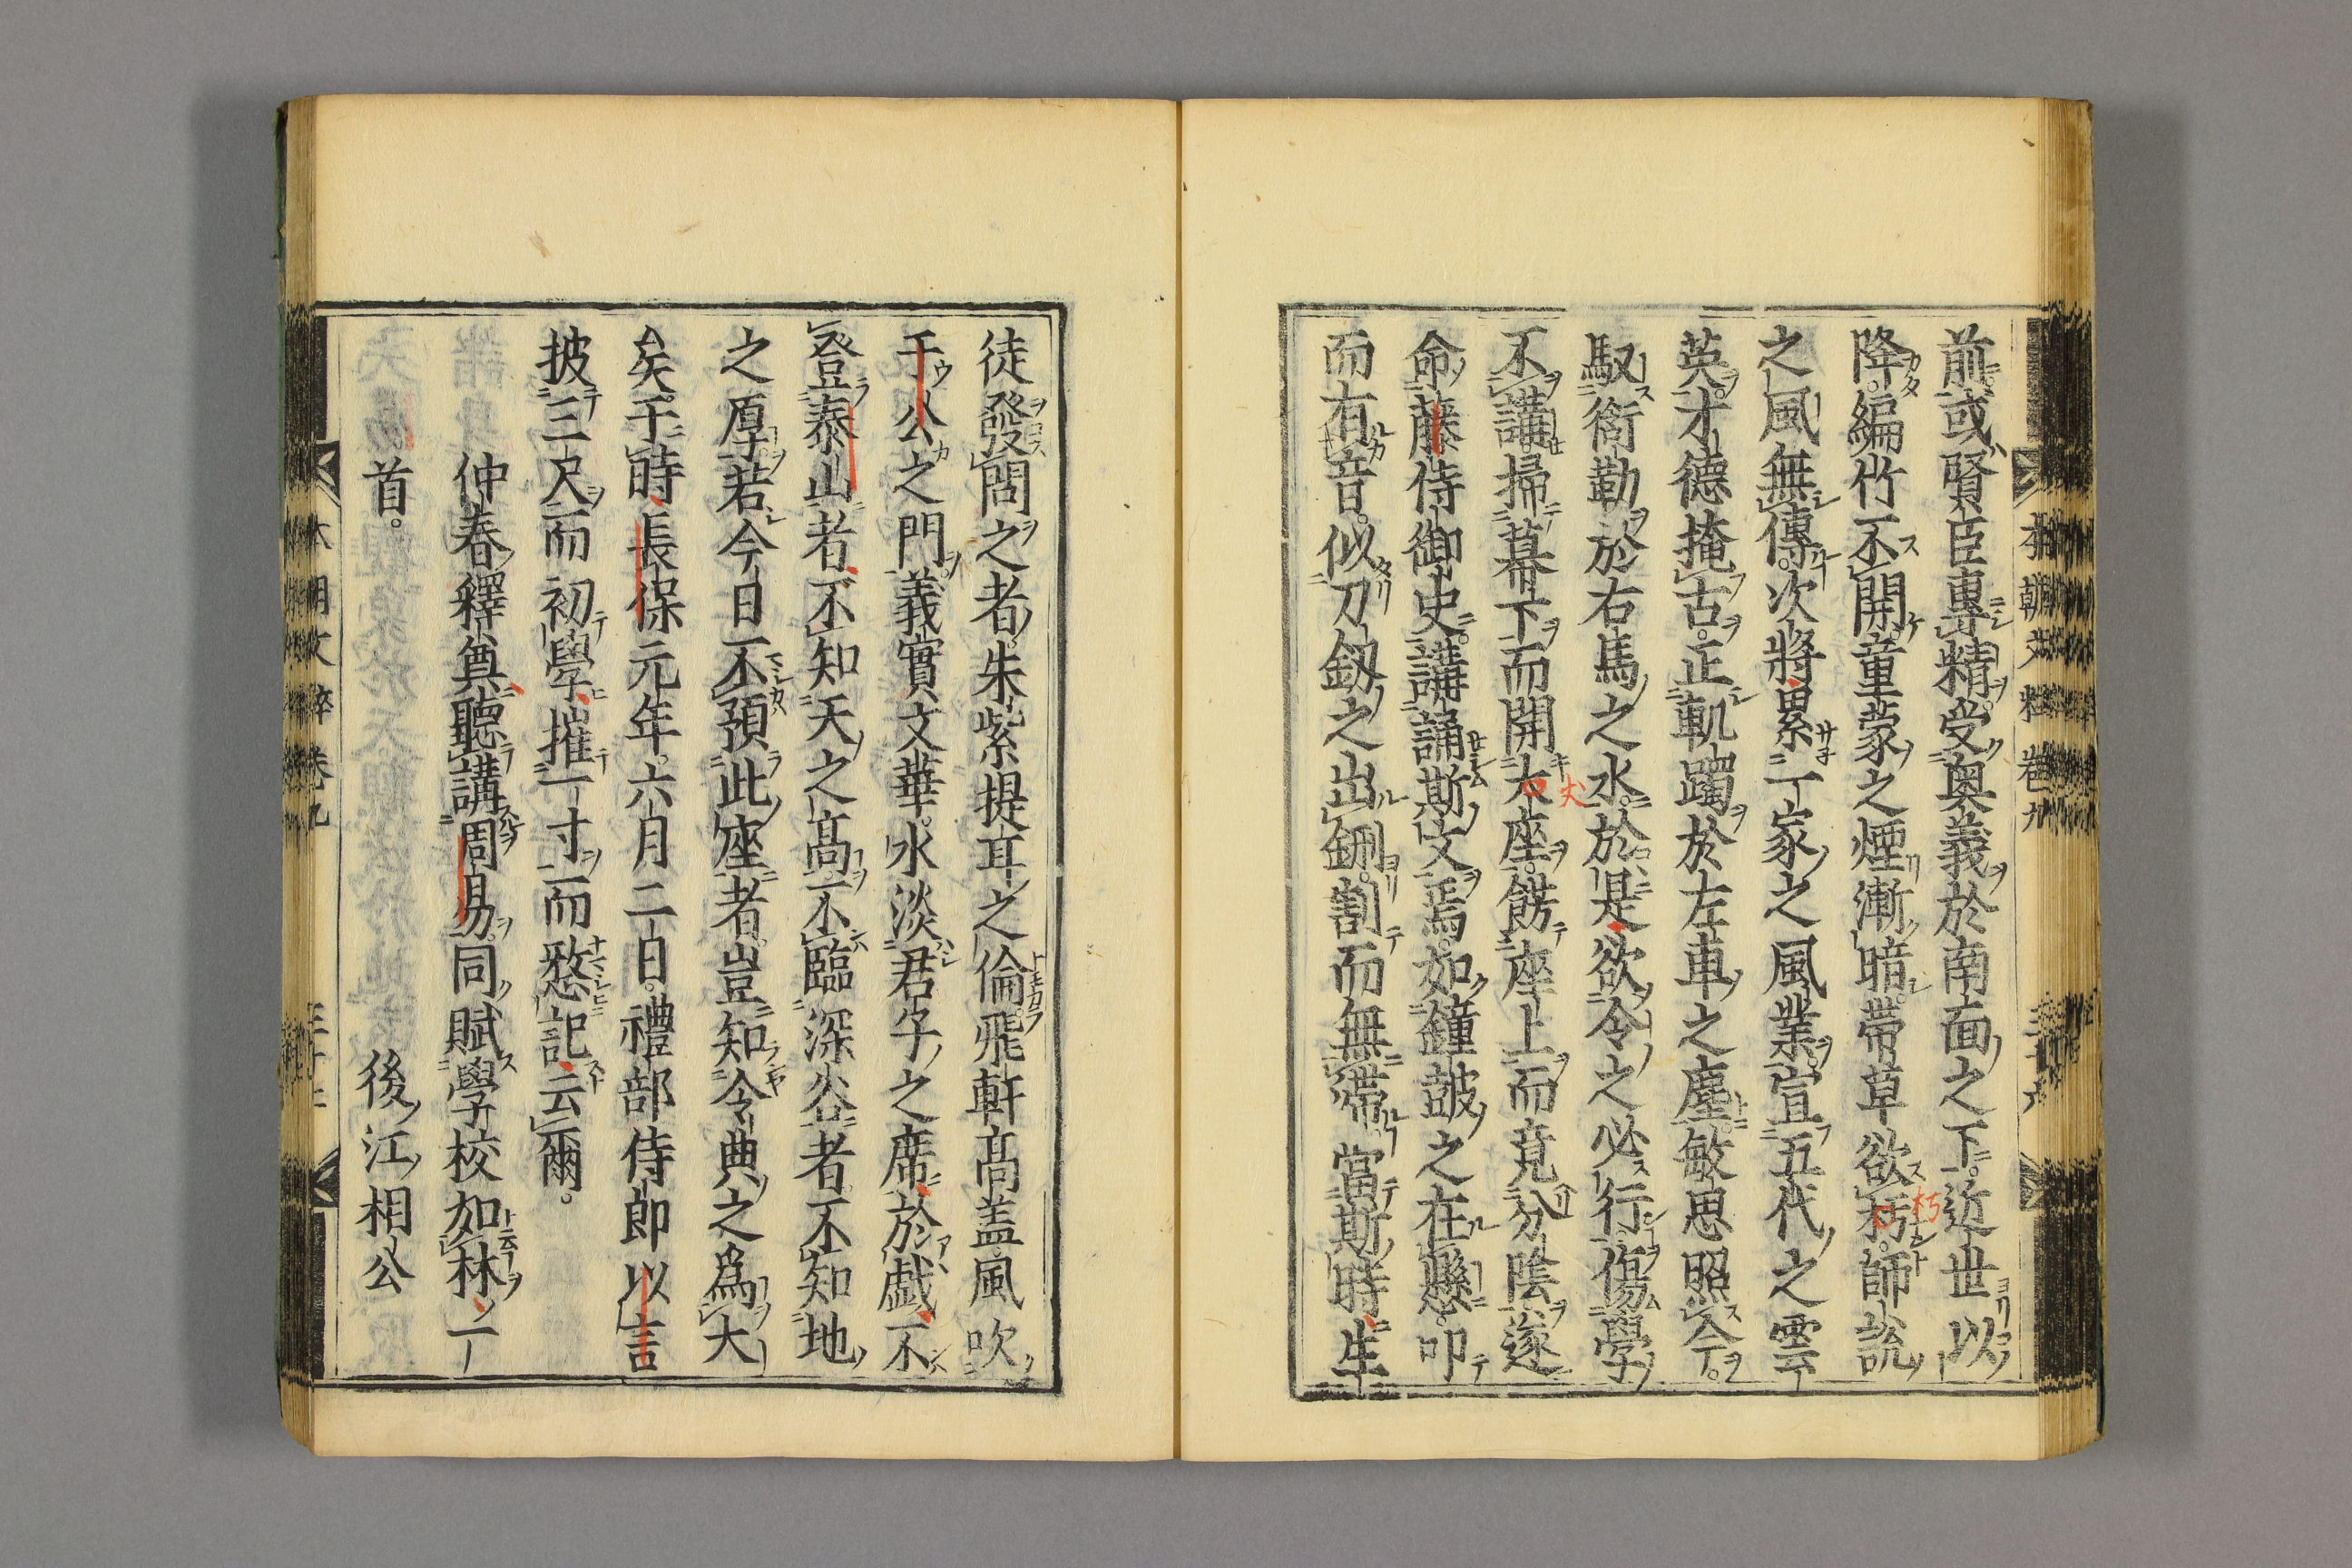 前或賢臣專精。受奥義於南面之下。近世以
降。編竹不開。童蒙之煙漸暗。帶草欲朽。師說
之風無傳。次將累一家之風業。宣五代之雲
英。才德掩古。正軏躅於左車之塵。敏思照今。
馭銜勒於右馬之水。於是欲令之必行。傷學
不講。掃幕下而開大座。餝座上而竟分陰。遂
命藤侍御史。講誦斯文焉。如鐘皷之在懸。叩
而有音。似刀釼之出鉶。割而無滯。當斯時。生
徒發問之者。朱紫提耳之倫。飛軒高盖風吹
于公之門。義實文華。水淡君子之席。於戲不
登泰山者。不知天之高。不臨深谷者。不知地
之厚。若今日不預此座者。豈知令典之爲大
矣。于時長保元年。六月二日。禮部侍郎以言
披三尺而初學。摧一寸而慙記。云爾。
仲春釋奠聽講周易。同賦學校如林。一
首。
後江相公
本朝文粹卷九
朽
大